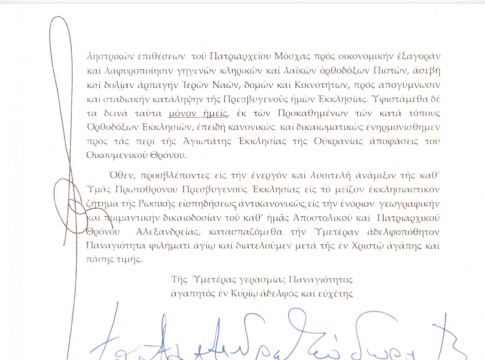 ληστρικῶν ἐπιθέσεων τοῦ Πατριαρχείου Μόσχας πρός οἰκονομικήν ἐξαγοράν
καί λαφυροποίησιν γηγενῶν κληρικῶν καί λαϊκῶν ὀρθοδόξων Πιστῶν, ἀσεβῆ
καί δολίαν ἁρπαγήν Ἱερῶν Ναῶν, δομῶν καί Κοινοτήτων, πρός ἀπογύμνωσιν
καί σταδιακήν κατάληψιν τῆς Πρεσβυγενοῦς ἡμῶν Ἐκκλησίας. Ὑφιστάμεθα δέ
τά δεινά ταῦτα μόνον ἡμεῖς, ἐκ τῶν Προκαθημένων τῶν κατά τόπους
Ὀρθοδόξων Ἐκκλησιῶν, ἐπειδή κανονικῶς καί δικαιωματικῶς ἐνηρμονίσθημεν
πρός τάς περί τῆς Ἁγιωτάτης Ἐκκλησίας τῆς Οὐκρανίας ἀποφάσεις τοῦ
Οἰκουμενικοῦ Θρόνου.
Ὅθεν, προσβλέποντες εἰς τήν ἐνεργόν καί λυσιτελῆ ἀνάμιξιν τῆς καθ'
Ὑμᾶς Πρωτοθρόνου Πρεσβυγενοῦς Ἐκκλησίας εἰς τό μεῖζον ἐκκλησιαστικόν
ζήτημα τῆς Ρωσικῆς εἰσπηδήσεως ἀντικανονικῶς εἰς τήν ἐνόριον γεωγραφικήν
καί ποιμαντικήν δικαιοδοσίαν τοῦ καθ' ἡμᾶς Ἀποστολικοῦ καί Πατριαρχικοῦ
Θρόνου Ἀλεξανδρείας, κατασπαζόμεθα τήν Ὑμετέραν ἀδελφοπόθητον
Παναγιότητα φιλήματι ἁγίῳ καί διατελοῦμεν μετά τῆς ἐν Χριστῷ ἀγάπης καί
πάσης τιμῆς.
Τῆς Ὑμετέρας γερασμίας Παναγιότητος
ἀγαπητός ἐν Κυρίῳ ἀδελφός καί εὐχέτης